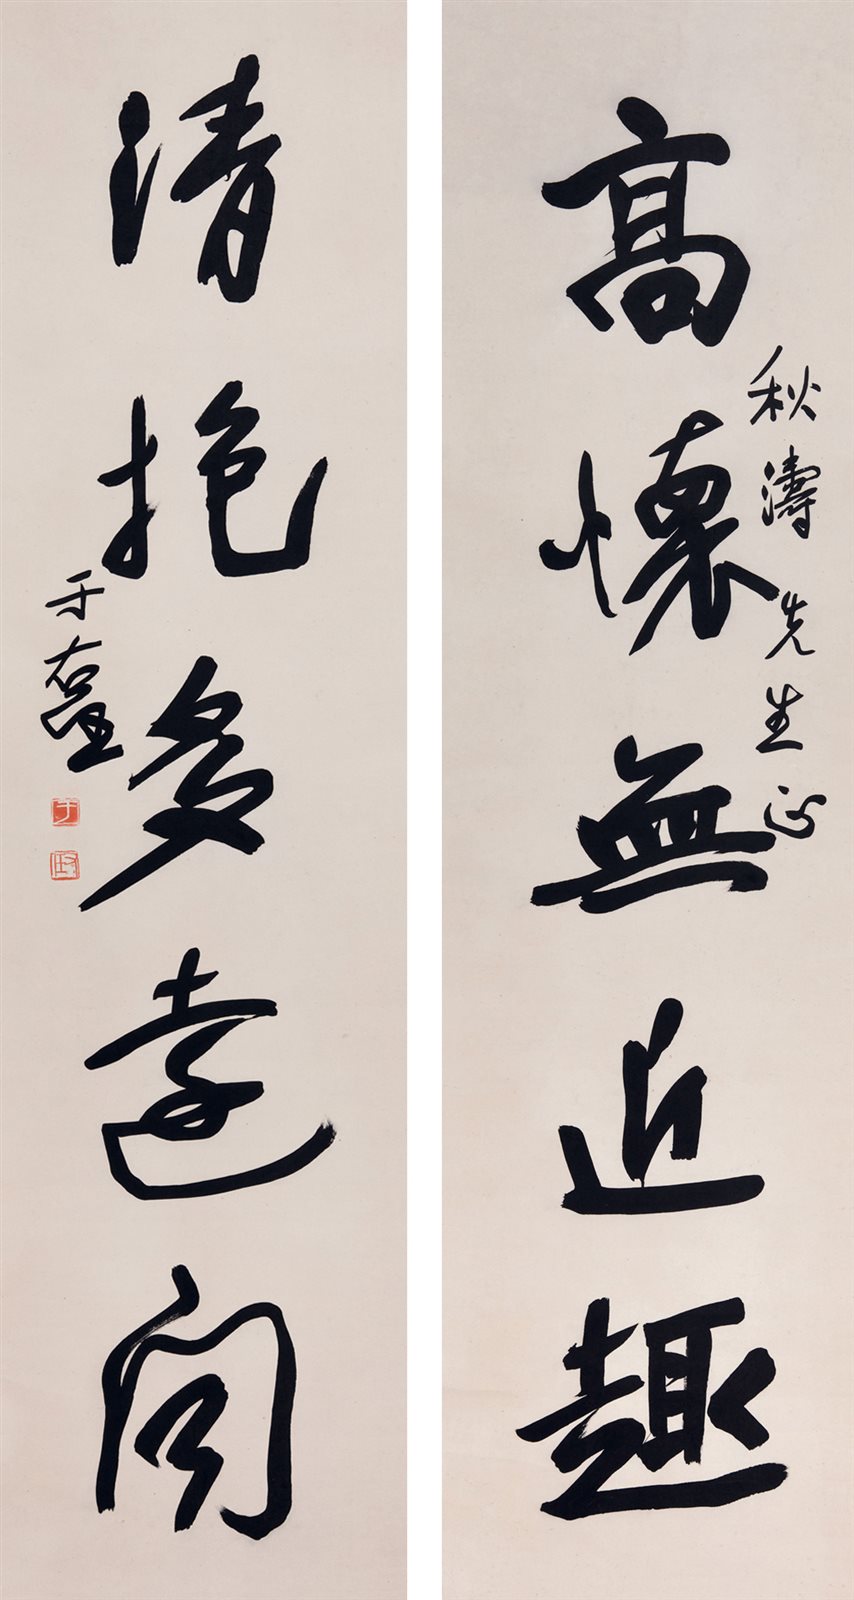 高懷無近趣
秋濤先生正
清抱多遠聞
于右任